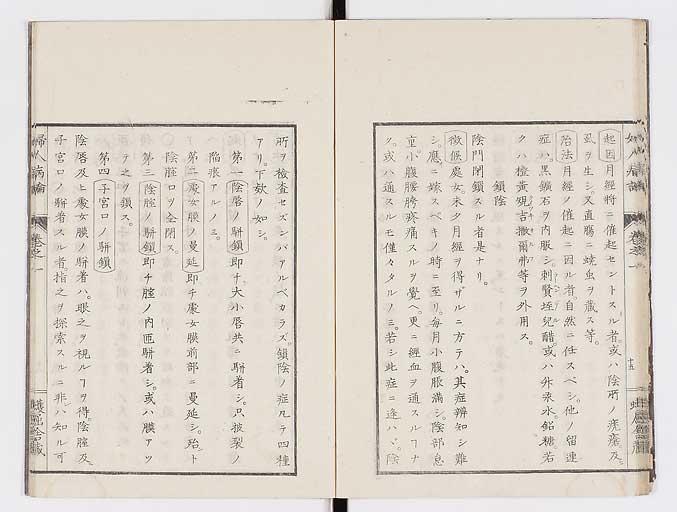 起因月經將ニ催起セントスル者。或ハ陰所ノ疣瘡及
虱ヲ生シ。又直膓ニ蟯虫ヲ藏ス等。
治法月經ノ催起ニ因ル者。自然ニ任スベシ。他ノ留連
症ハ。黒鑛石ヲ内服シ。刺賢垤兒醋。或ハ外泉水。鉛糖。若
クハ橙黄覕吉撒爾弗等ヲ外用ス。
鎖陰
陰門閉鎖スル者是ナリ。
徴候處女未タ月經ヲ得ザルニ方テハ。其症辨知シ難
シ。應ニ嫁スベキノ時ニ至リ。每月小腹脹滿シ。陰部怠
重。小腹腰胯疼痛スルヲ覺ヘ。更ニ經血ヲ通スルヿナ
ク。或ハ通スルモ僅々タルノミ。若シ此症ニ逢ハヾ。陰
婦人病論
卷之一
十五
所ヲ檢査セズンバアルベカラズ。鎖陰ノ症凡テ四種
アリ。下款ノ如シ。
第一陰唇ノ駢鎖即チ大小唇共ニ駢着シ。只披裂ノ
陷痕アルノミ。
第二處女膜ノ蔓延即チ處女膜前部ニ蔓延シ。殆ト
陰腟口ヲ全閉ス。
第三陰腟ノ駢鎖即チ腟ノ内面駢着シ。或ハ膜アツ
テ之ヲ鎖ス。
第四子宮口ノ駢鎖
陰唇及ヒ處女膜ノ駢着ハ。眼之ヲ視ルヿヲ得。陰腟及
子宮口ノ駢着スル者。指之ヲ探索スルニ非ハ知ル可
婦人病論
卷之一